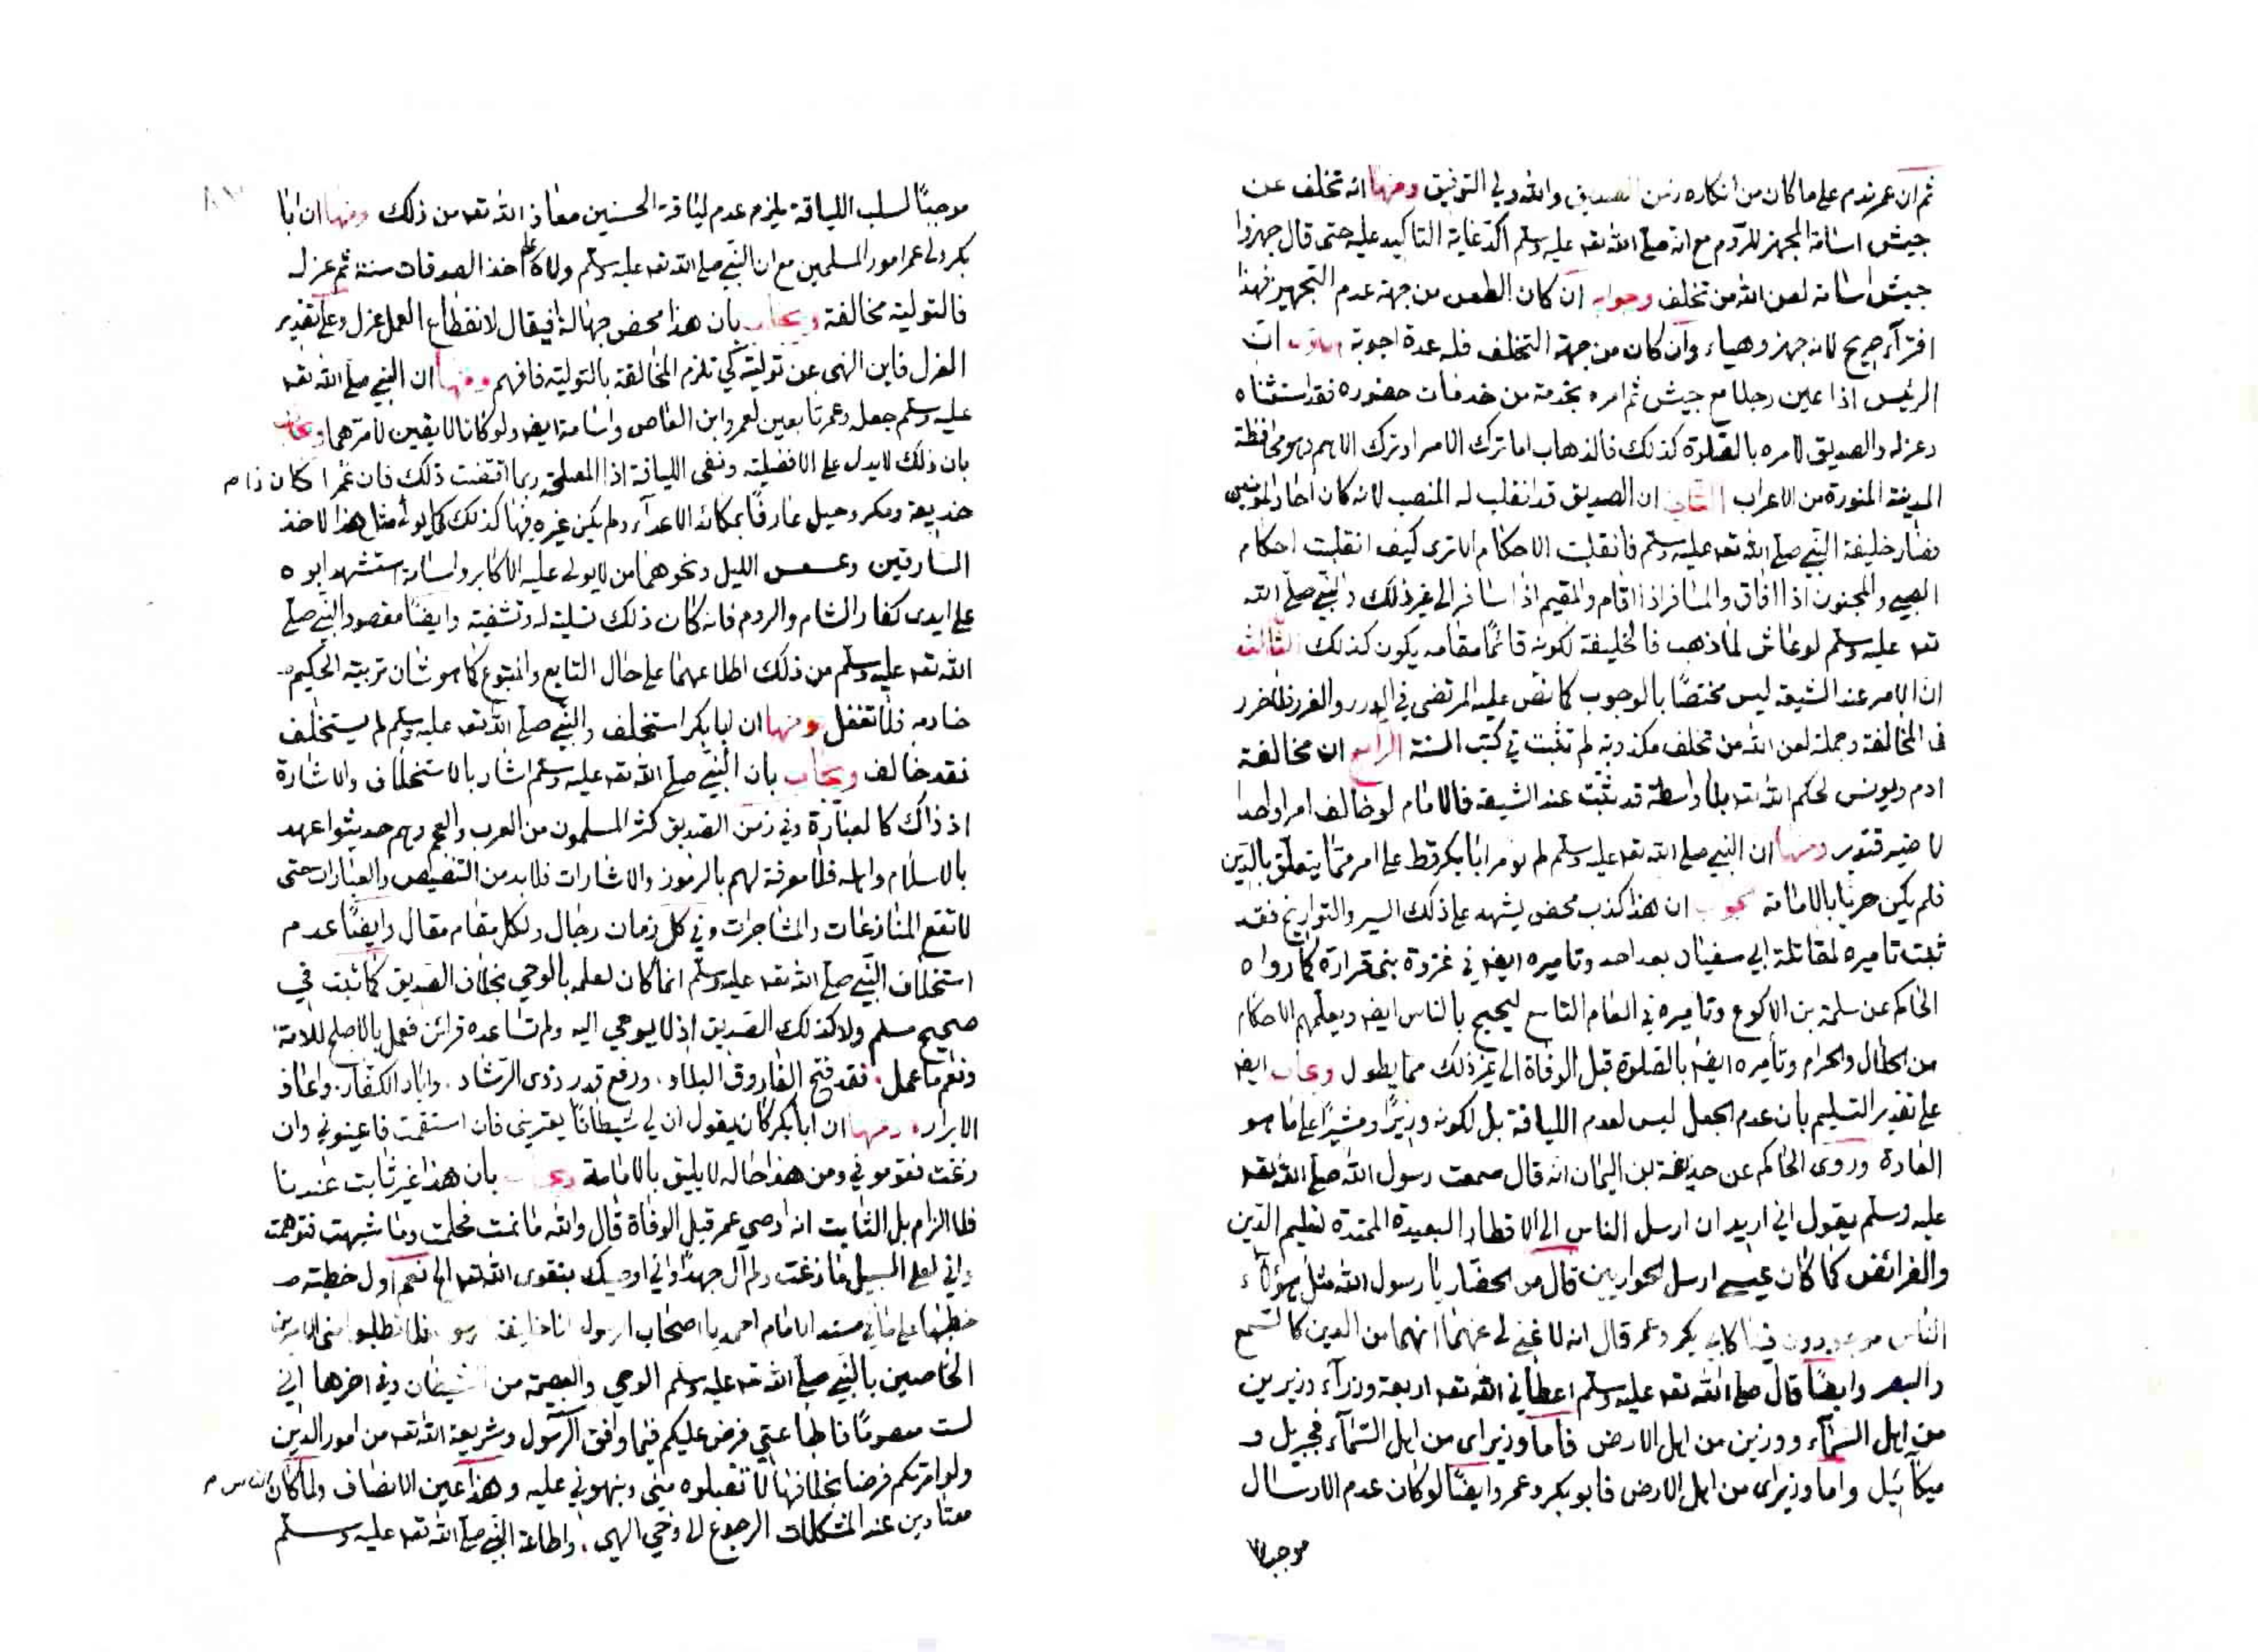 ثم ان عمر ندم على ما كان من انكاره زمن الصديق والله ولي التوفيق ومنها انه تخلف عن
جيش اسامة المجهز للروم مع انه صلى الله تعه عليه وسلم اكد غاية التاكيد عليه حتى قال جهزوا
جيش اسامة لعن الله من تخلف وجوابه ان كان الطعن من جهة عدم التجهيز فهذا
افترآء صريح لانه جهز وهياء وان كان من جهة التخلف فله عدة اجوبة ان
الرئيس اذا عين رجلا مع جيش ثم امره بخدمة من خدمات حضوره فقد استثناه
وعزله والصديق لامره بالصلوة كذلك فالذهاب اما ترك الامر او ترك الاهم وهو محافظة
المدينة المنورة من الاعراب الثاني ان الصديق قد انقلب له المنصب لانه كان احاد المؤمنين
فصار خليفة النبي صلى الله تعه عليه وسلم فانقلبت الاحكام الا ترى كيف انقلبت احكام
الصبي والمجنون اذا افاق والمسافر اذا اقام والمقيم اذا سافر الى غير ذلك والنبي صلى الله
تعه عليه وسلم لو عاش لما ذهب فالخليفة لكونه قائمًا مقامه يكون كذلك الثالث
ان الامر عند الشيعة ليس مختصًا بالوجوب كما نص عليه المرتضى في الدرر والغرر فلا ضرر
فى المخالفة وجملة لعن الله من تخلف مكذوبة لم تثبت في كتب السنة الرابع ان مخالفة
ادم ويونس لحكم الله تعه بلا واسطة قد ثبتت عند الشيعة فالامام لو خالف امرا واحدا
لا ضير فتدبر ومنها ان النبي صلى الله تعه عليه وسلم لم يؤمر ابا بكر قط على امر ممّا يتعلق بالدّين
فلم يكن حريا بالامامة ان هذا كذب محض يشهد على ذلك السير والتواريخ فقد
ثبت تاميره لمقاتلة ابي سفيان بعد احد وتاميره ايضه في غزوة بنى قرارة كما رواه
الحاكم عن سلمة بن الاكوع وتاميره في العام التاسع ليحج بالناس ايضه ويعلمهم الاحكام
من الحلال والحرام وتأميره ايضه بالصلوة قبل الوفاة الى غير ذلك مما يطول ويجاب ايضه
على تقدير التسليم بان عدم الجعل ليس لعدم اللياقة بل لكونه وزيرًا ومشيرًا على ما هو
العادة وروى الحاكم عن حذيفة بن اليمان انه قال سمعت رسول الله صلى الله تعه
عليه وسلم يقول اني اريد ان ارسل الناس الى الاقطار البعيدة الممتدة لتعليم الدين
والفرائض كما كان عيسى ارسل الحواريين قال من الحضار يا رسول الله مثل هؤلآء
الناس موجودون فينا كابي بكر وعمر قال انه لا غنى لي عنهما انهما من الدين كالسمع
والبصر وايضًا قال صلى الله تعه عليه وسلم اعطاني الله تعه اربعة وزرآء وزيرين
من اهل السّمآء ووزيرين من اهل الارض فأما وزيراى من اهل السّمآء فجبريل و
ميكآئيل واما وزيراى من اهل الارض فابو بكر وعمر وايضًا لو كان عدم الارسال
موجبا
موجبًا لسلب اللياقة يلزم عدم لياقة الحسنين معاذ الله تعه من ذلك ومنها ان ابا
بكر ولى عمر امور المسلمين مع ان النبي صلى الله تعه عليه وسلم ولاه على اخذ الصدقات سنة ثم عزله
فالتولية مخالفة ويجاب بان هذا محض جهالة افيقال لانقطاع العمل عزل وعلى تقدير
العزل فاين النهى عن توليته كي تلزم المخالفة بالتولية فافهم ومنها ان النبي صلى الله تعه
عليه وسلم جعله وعمر تابعين لعمرو ابن العاص واسامة ايضه ولو كانا لايقين لامّرهما ويجاب
بان ذلك لا يدل على الافضلية ونفى اللياقة اذ المصلحة ربما اقتضت ذلك فان عمرا كان ذا م
خديعة ومكر وحيل عارفًا بمكائد الاعدآء ولم يكن غيره فيها كذلك كما يولى مثل هذا لاخذ
السارقين وعسس الليل ونحوهما من لا يولى عليه الاكابر واسامة استشهد ابوه
على ايدى كفار الشام والروم فانه كان ذلك تسلية له وتشفية وايضًا مقصود النبي صلى
الله تعه عليه وسلم من ذلك اطلاعهما على حال التابع والمتبوع كما هو شان تربية الحكيم
خادمه فلا تغفل ومنها ان ابا بكر استخلف والنبي صلى الله تعه عليه وسلم لم يستخلف
فقد خالف ويجاب بان النبي صلى الله تعه عليه وسلم اشار بالاستخلاف والاشارة
اذ ذاك كالعبارة وفي زمن الصديق كثر المسلمون من العرب والعجم وهم حديثوا عهد
بالاسلام واهله فلا معرفة لهم بالرموز والاشارات فلا بد من التنصيص والعبارات حتى
لا تقع المنازعات والمشاجرات وفي كل زمان رجال ولكل مقام مقال وايضًا عدم
استخلاف النبي صلى الله تعه عليه وسلم انما كان لعلمه بالوحي بخلاف الصديق كما ثبت في
صحيح مسلم ولا كذلك الصديق اذ لا يوحي اليه ولم تساعده قرائن فعمل بالاصلح للامة
ونعم ما عمل فقد فتح الفاروق البلاد ورفع قدر ذوى الرشاد واباد الكفار واعاذ
الابرار ومنها ان ابا بكر كان يقول ان لي شيطانًا يعتريني فان استقمت فاعينوني وان
زغت فقوموني ومن هذا حاله لا يليق بالامامة بان هذا غير ثابت عندنا
فلا الزام بل الثابت انه اوصي عمر قبل الوفاة قال والله ما نمت فحلمت وما شبهت فتوهمت
واني لعلى السبيل ما زغت ولم آل جهدًا واني اوصيك بتقوى الله تعه الخ نعم اول خطبة
خطبها على ما في مسند الامام احمد يا اصحاب الرسول انا خليفة فلا تطلبوا منى الامرين
الخاصين بالنبي صلى الله تعه عليه وسلم الوحي والعصمة من الشيطان وفي اخرها اني
لست معصومًا فاطاعتي فرض عليكم فيما وافق الرّسول وشريعة الله تعه من امور الدّين
ولو امرتكم فرضا بخلافها لا تقبلوه منى ونبهوني عليه وهذا عين الانصاف ولما كان الناس م
معتادين عند المشكلات الرجوع الى وحي الهي واطاعة النبي صلى الله تعه عليه وسلم